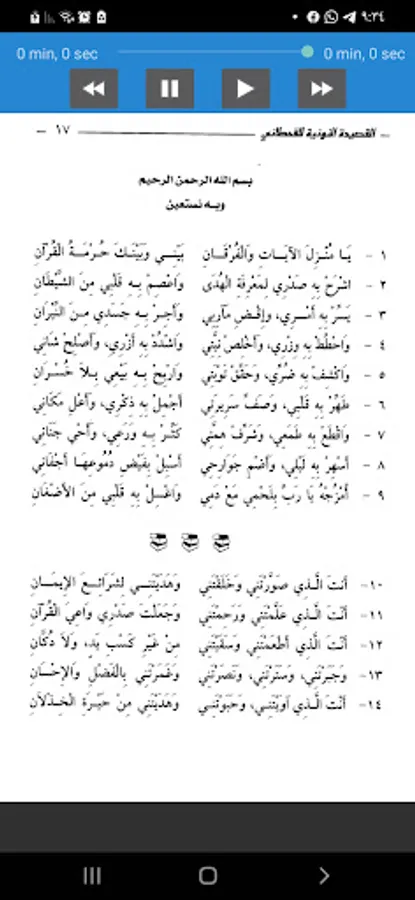 ٩:٣٤
0 min, 0 sec 0 min, 0 sec
القصيدة النونية للقحطاني ١٧
بسم الله الرحمن الرحيم
وبه نستعين
١ - يَا مُنْزِلَ الآيَاتِ وَالْفُرْقَانِ بَيْنِي وَبَيْنَكَ حُرْمَةُ الْقُرْآنِ
٢ - اشْرَحْ بِهِ صَدْرِي لِمَعْرِفَةِ الْهُدَى وَاعْصِمْ بِهِ قَلْبِي مِنَ الشَّيْطَانِ
٣ - يَسِّرْ بِهِ أَمْرِي، وَاقْضِ مَآرِبِي وَأَجِرْ بِهِ جَسَدِي مِنَ النِّيْرَانِ
٤ - وَاحْطُطْ بِهِ وِزْرِي، وَأَخْلِصْ نِيَّتِي وَاشْدُدْ بِهِ أَزْرِي، وَأَصْلِحْ شَانِي
٥ - وَاكْشِفْ بِهِ ضُرِّي، وَحَقِّقْ تَوْبَتِي وَارْبِحْ بِهِ بَيْعِي بِلاَ خُسْرَانِ
٦ - طَهِّرْ بِهِ قَلْبِي، وَصَفِّ سَرِيرَتِي أَجْمِلْ بِهِ ذِكْرِي، وَأَعْلِ مَكَانِي
٧ - وَاقْطَعْ بِهِ طَمَعِي، وَشَرِّفْ هِمَّتِي كَثِّرْ بِهِ وَرَعِي، وَأَحْيِ جَنَانِي
٨ - أَسْهِرْ بِهِ لَيْلِي، وَأَضْمِ جَوَارِحِي أَسْبِلْ بِفَيْضِ دُمُوعِهَا أَجْفَانِي
٩ - أُمْزُجْهُ يَا رَبُّ بِلَحْمِي مَعْ دَمِي وَاغْسِلْ بِهِ قَلْبِي مِنَ الأَضْغَانِ
١٠- أَنْتَ الَّذِي صَوَّرْتَنِي وَخَلَقْتَنِي وَهَدَيْتَنِي لِشَرَائِعِ الإِيمَانِ
١١- أَنْتَ الَّذِي عَلَّمْتَنِي وَرَحِمْتَنِي وَجَعَلْتَ صَدْرِي وَاعِيَ الْقُرْآنِ
١٢- أَنْتَ الَّذِي أَطْعَمْتَنِي وَسَقَيْتَنِي مِنْ غَيْرِ كَسْبِ يَدٍ، وَلاَ دُكَّانِ
١٣- وَجَبَرْتَنِي، وَسَتَرْتَنِي، وَنَصَرْتَنِي وَغَمَرْتَنِي بِالْفَضْلِ وَالإِحْسَانِ
١٤- أَنْتَ الَّذِي آوَيْتَنِي، وَحَبَوْتَنِي وَهَدَيْتَنِي مِنْ حَيْرَةِ الْخِذْلاَنِ